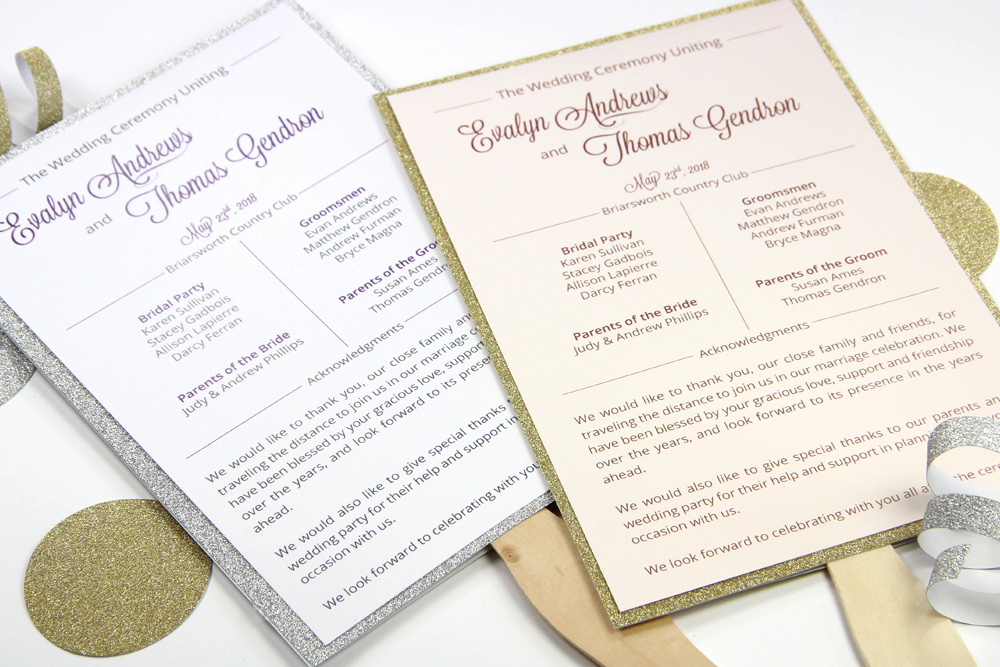 The Wedding Ceremony Uniting
Evalyn Andrews
and Thomas Gendron
May 23rd, 2018
Briarsworth Country Club
Bridal Party
Karen Sullivan
Stacey Gadbois
Allison Lapierre
Darcy Ferran
Groomsmen
Evan Andrews
Matthew Gendron
Andrew Furman
Bryce Magna
Parents of the Bride
Judy & Andrew Phillips
Parents of the Groom
Susan Ames
Thomas Gendron
Acknowledgments
We would like to thank you, our close family and
traveling the distance to join us in our marriage
have been blessed by your gracious love, support
over the years, and look forward to its presence
ahead.
We would also like to give special thanks
wedding party for their help and support in
occasion with us.
We look forward to celebrating with you
The Wedding Ceremony Uniting
Evalyn Andrews
and Thomas Gendron
May 23rd, 2018
Briarsworth Country Club
Bridal Party
Karen Sullivan
Stacey Gadbois
Allison Lapierre
Darcy Ferran
Groomsmen
Evan Andrews
Matthew Gendron
Andrew Furman
Bryce Magna
Parents of the Bride
Judy & Andrew Phillips
Parents of the Groom
Susan Ames
Thomas Gendron
Acknowledgments
We would like to thank you, our close family and friends, for
traveling the distance to join us in our marriage celebration. We
have been blessed by your gracious love, support and friendship
over the years, and look forward to its presence in the years
ahead.
We would also like to give special thanks to our parents and
wedding party for their help and support in
occasion with us.
We look forward to celebrating with you all the